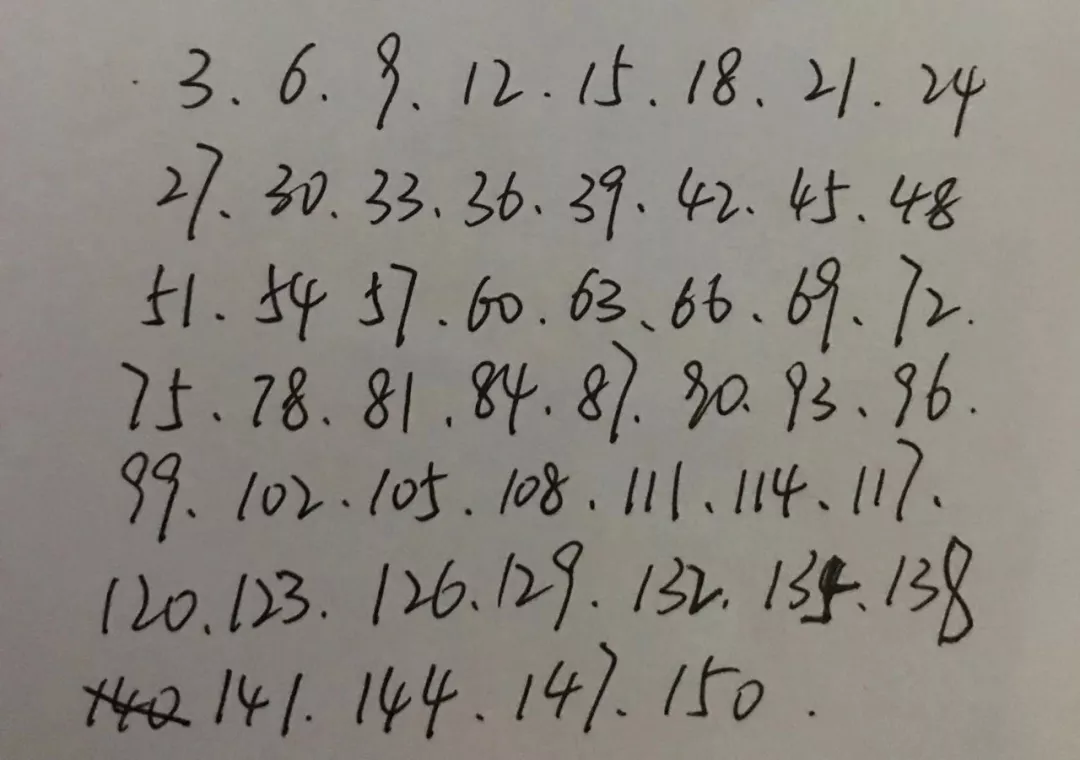 3. 6. 9. 12. 15. 18. 21. 24
27. 30. 33. 36. 39. 42. 45. 48
51. 54 57. 60. 63. 66. 69. 72.
75. 78. 81. 84. 87. 90. 93. 96.
99. 102. 105. 108. 111. 114. 117.
120. 123. 126. 129. 132. 135. 138
140 141. 144. 147. 150.